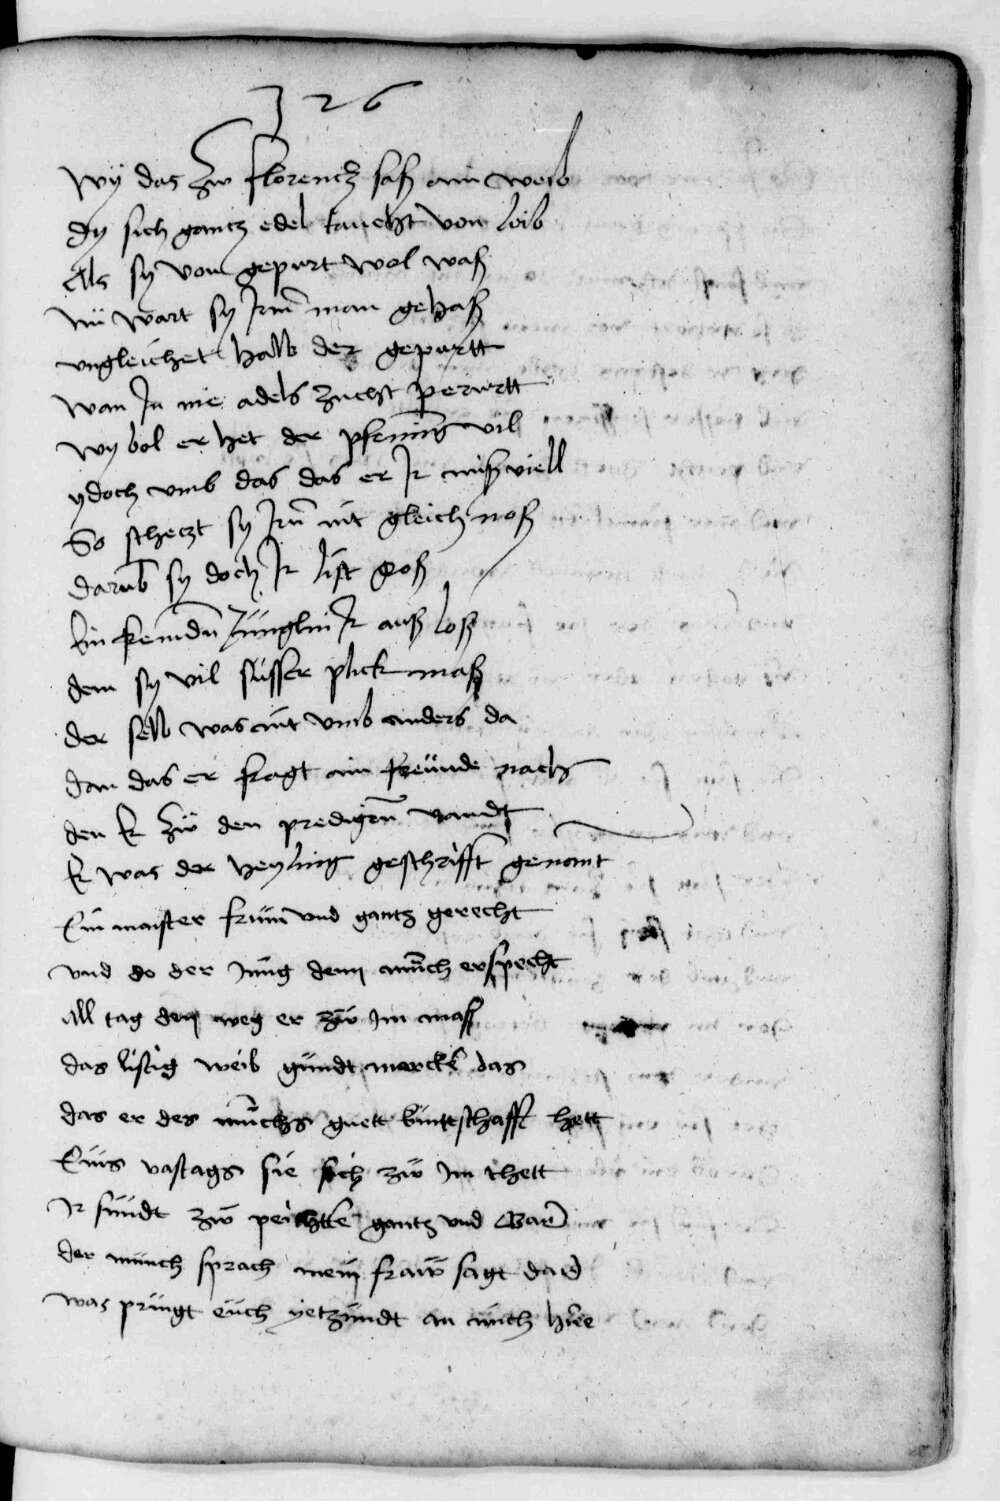 326
Wÿ das zw florencz saß ain weib
dy sich gantz edel taucht von leib
Als sy von gepurt wol waß
Nü wart sy Irm man gehaß
vngleichet halb der gepurtt
wan In nie adels zucht perurtt
wy bol er het der pfening vil
ydoch vmb das das er Ir mißviell
So scheczt sy Irn nit gleich noß
darumb sy doch Ir list groß
Ein fremdn Jünglin Ir auß loß
dem sy vil süsser plick maß
der selb was nit vmb anders da
dan das er fragt aim freünde nach
den Er zw den predigern vandt
Er was der heyling geschrifft genant
Ein maister frum vnd gantz gerecht
vnd do der Jüng dem münch ersprecht
All tag den weg er zw im maß
das listig weib gündt mercke das
das er des münchs guett küntschafft hett
Eins vastags sie sich zw im thett
Ir sündt zw peichtte gantz vnd gar
der münch sprach mein fraw sagt dar
was pringt euch yetzündt an mich here